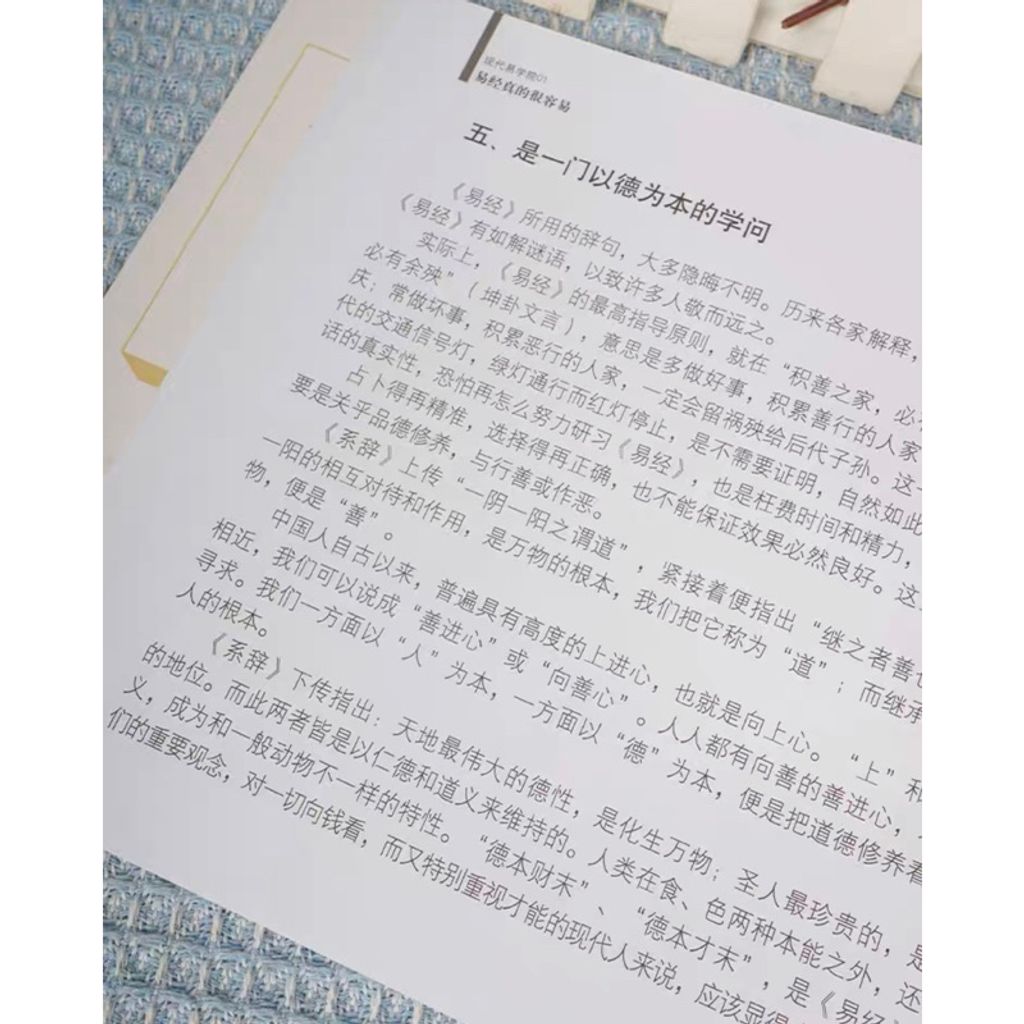 现代易学院01
易经真的很容易
五、是一门以德为本的学问
《易经》所用的辞句，大多隐晦不明。历来各家解释，
《易经》有如解谜语，以致许多人敬而远之。
实际上，《易经》的最高指导原则，就在“积善之家，必有
必有余殃”（坤卦文言），意思是多做好事，积累善行的人家
庆；常做坏事，积累恶行的人家，一定会留祸殃给后代子孙。这一
代的交通信号灯，绿灯通行而红灯停止，是不需要证明，自然如此
话的真实性，恐怕再怎么努力研习《易经》，也是枉费时间和精力，
占卜得再精准，选择得再正确，也不能保证效果必然良好。这
要是关乎品德修养，与行善或作恶。
《系辞》上传“一阴一阳之谓道”，紧接着便指出“继之者善也
一阳的相互对待和作用，是万物的根本，我们把它称为“道”；而继承
物，便是“善”。
中国人自古以来，普遍具有高度的上进心，也就是向上心。“上”和
相近，我们可以说成“善进心”或“向善心”。人人都有向善的善进心，
寻求。我们一方面以“人”为本，一方面以“德”为本，便是把道德修养看
人的根本。
《系辞》下传指出：天地最伟大的德性，是化生万物；圣人最珍贵的，是
的地位。而此两者皆是以仁德和道义来维持的。人类在食、色两种本能之外，还
义，成为和一般动物不一样的特性。“德本财末”、“德本才末”，是《易经》
们的重要观念，对一切向钱看，而又特别重视才能的现代人来说，应该显得